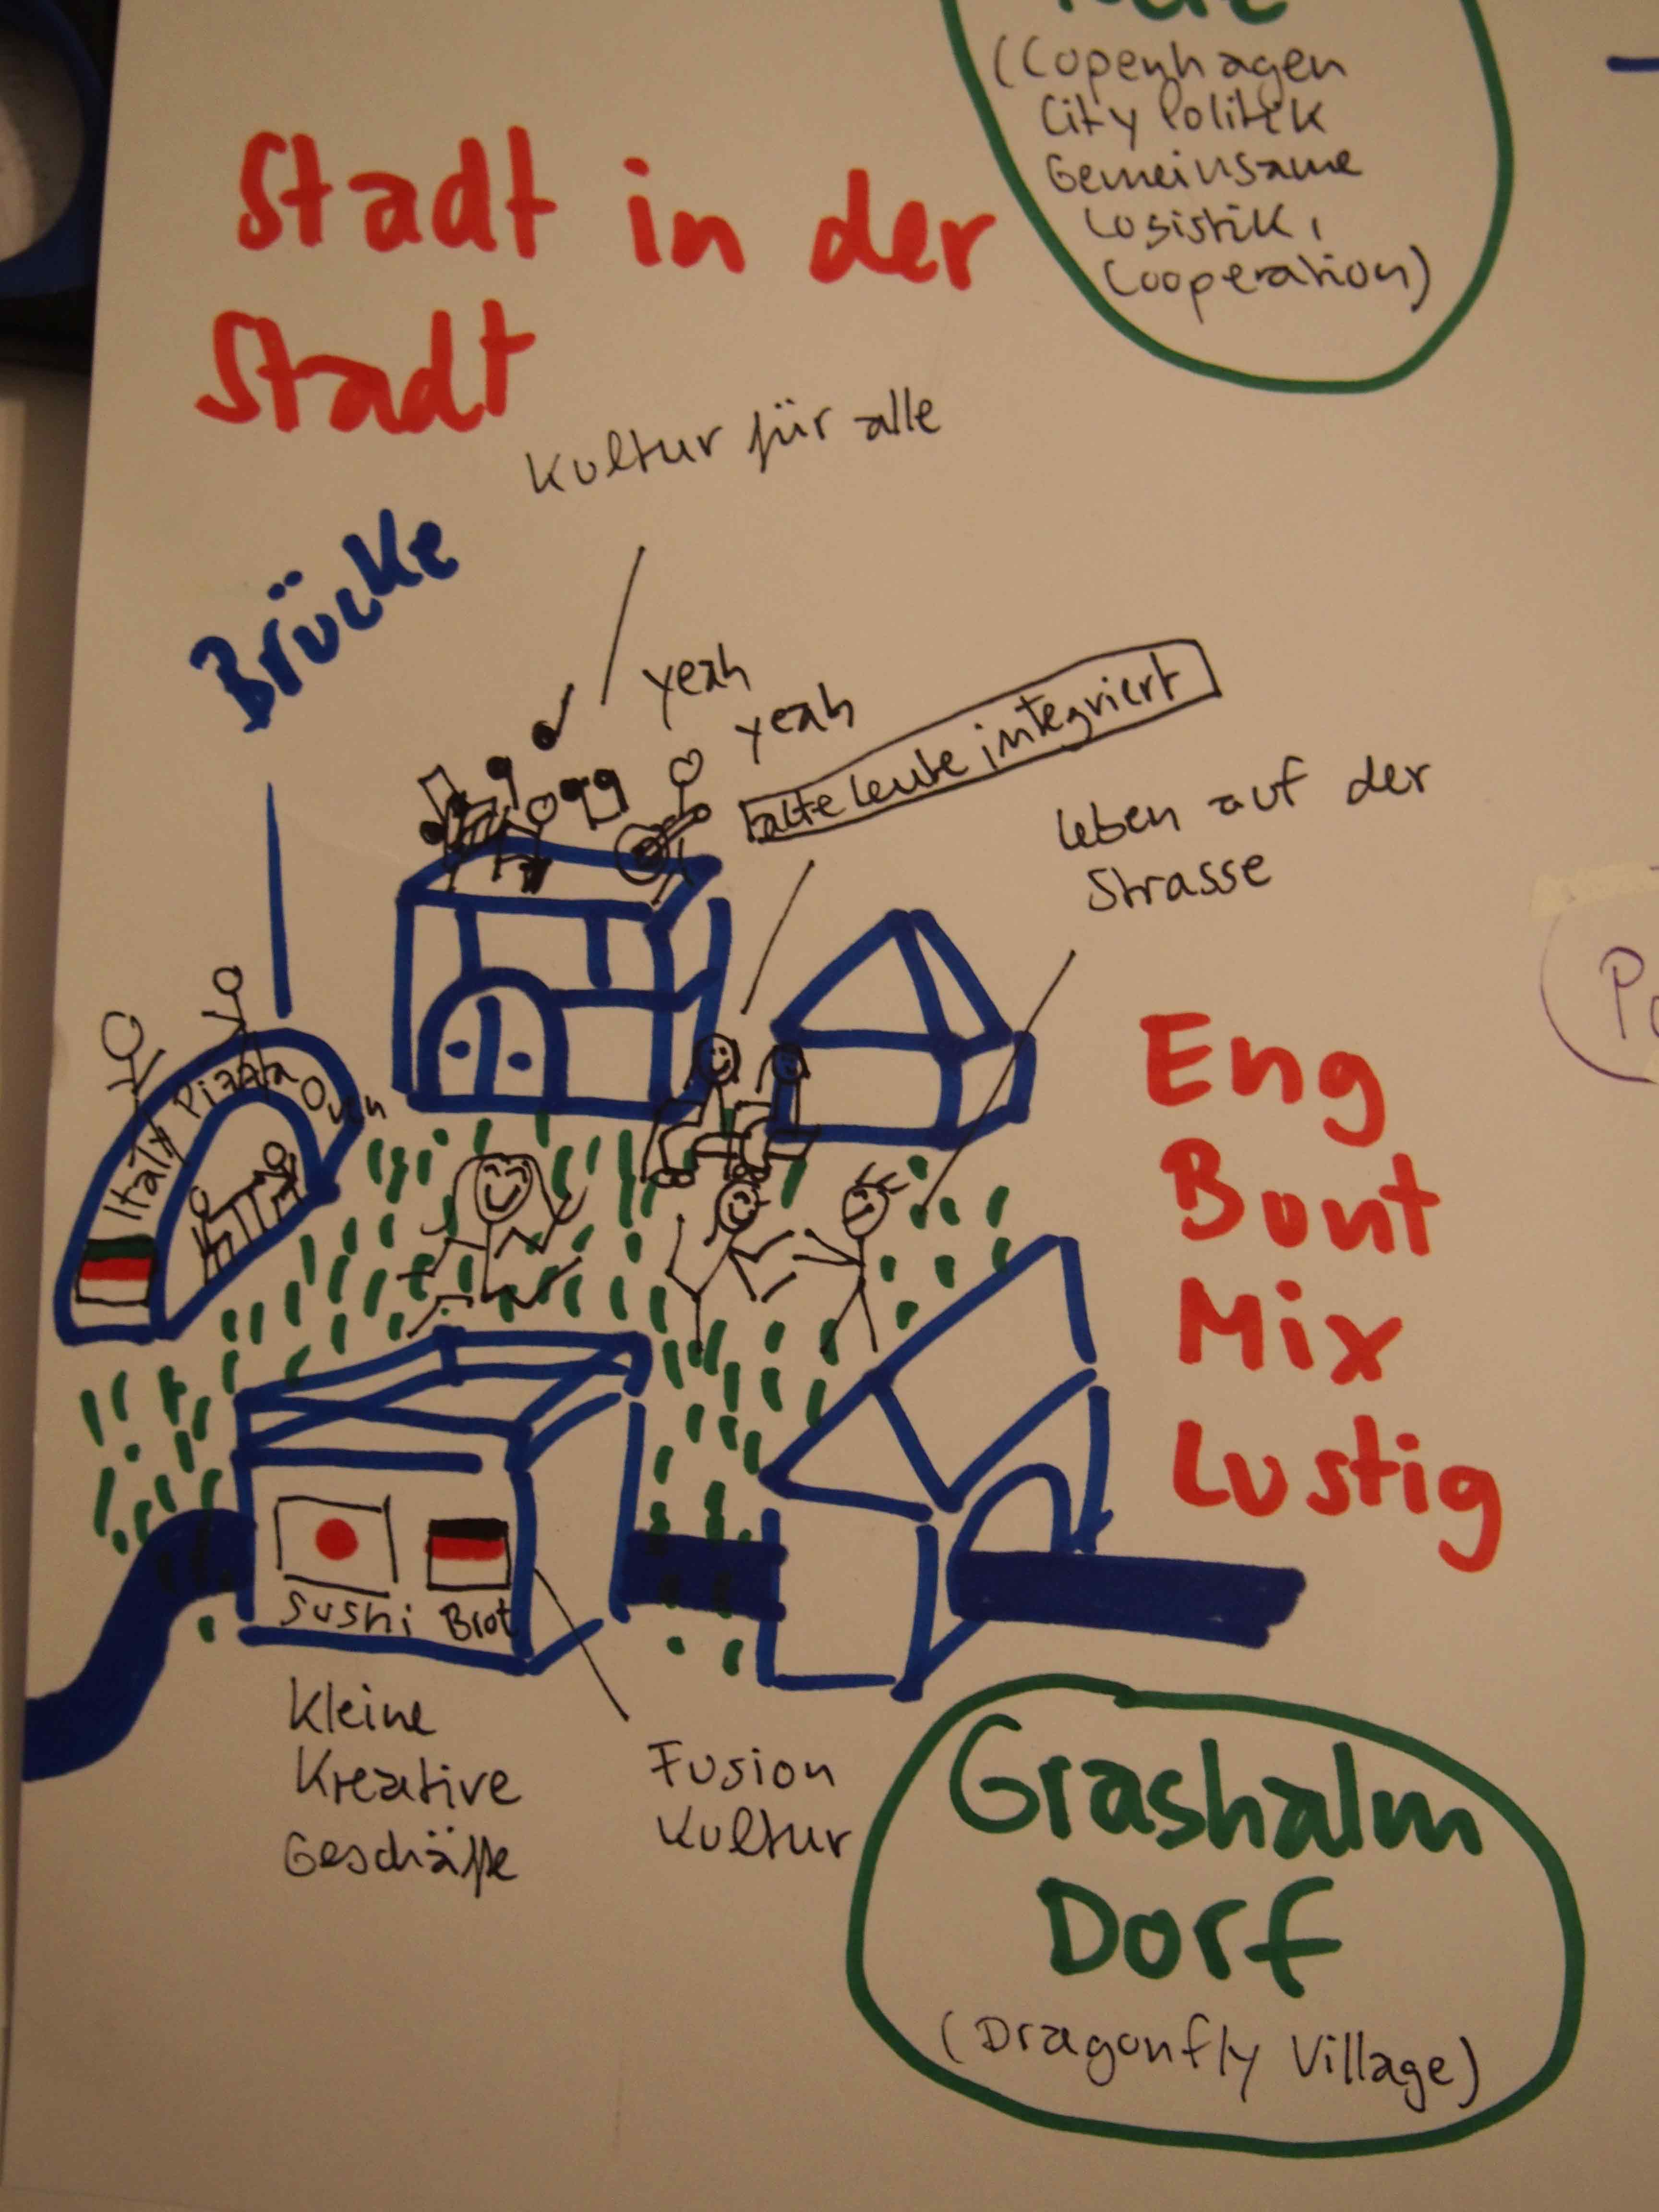 (Copenhagen
City Politik
Gemeinsame
Logistik,
Cooperation)
Stadt in der
Stadt
Kultur für alle
Brücke
yeah
yeah
alte leute integriert
leben auf der
Strasse
Italy Pizza Oven
Eng
Bunt
Mix
Lustig
Sushi Brot
Kleine
Kreative
Geschäfte
Fusion
Kultur
Grashalm
Dorf
(Dragonfly Village)